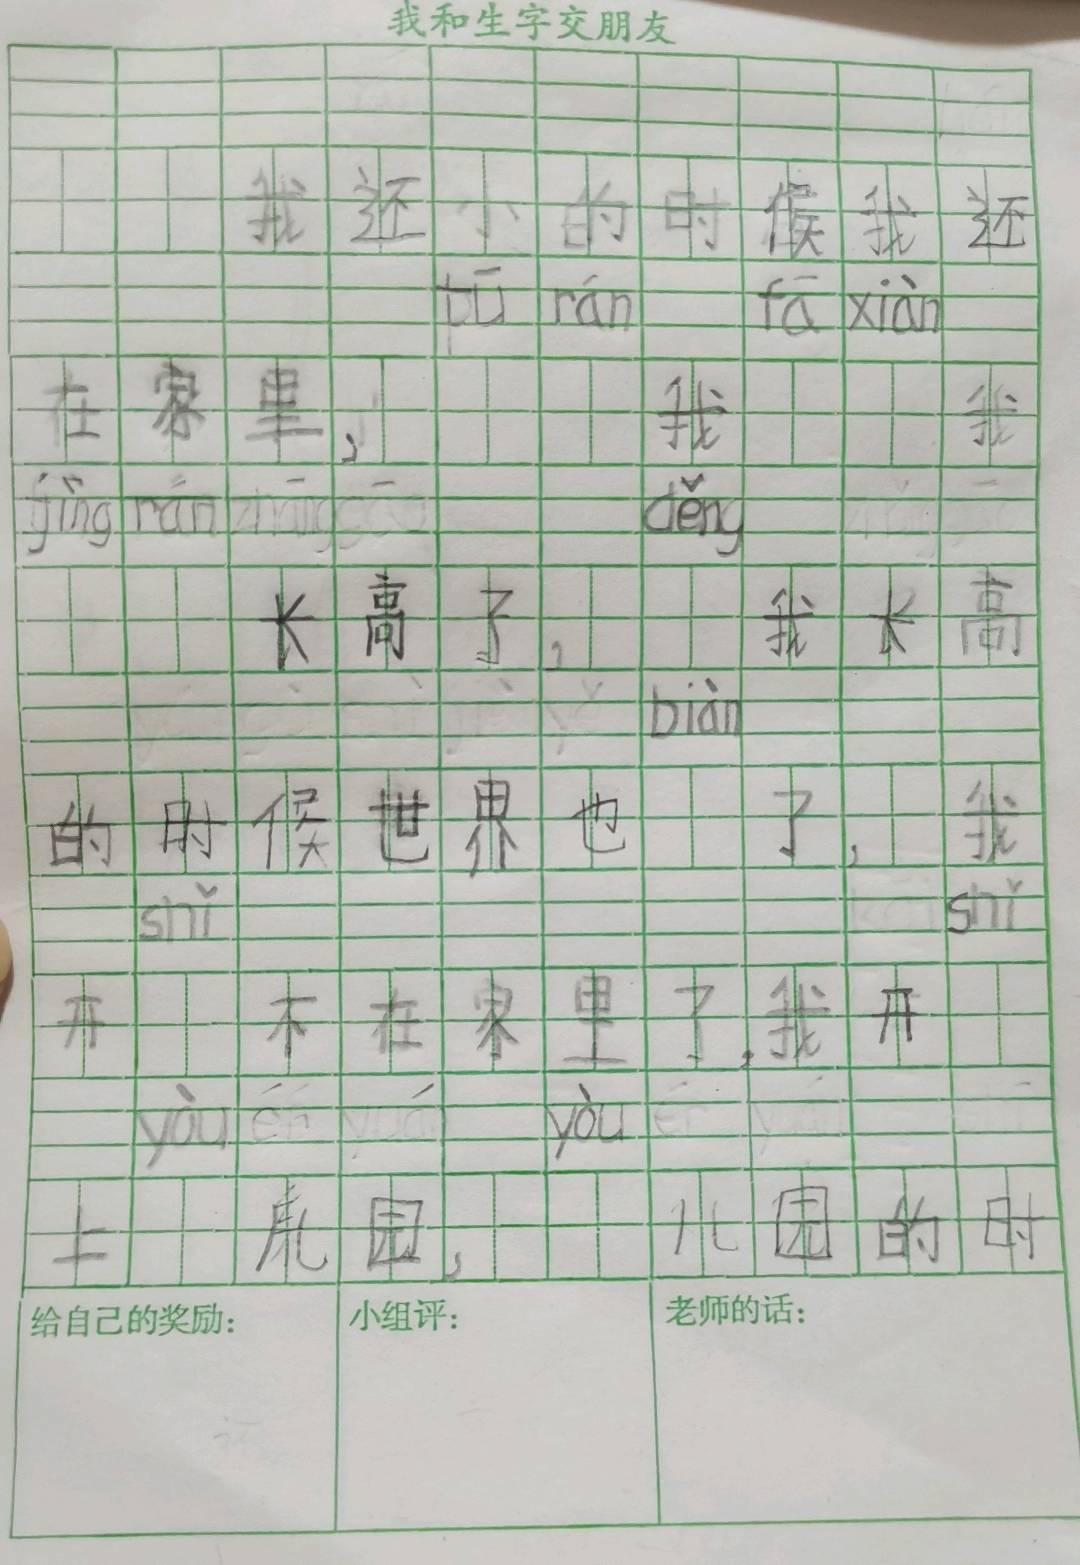 我和生字交朋友
我还小的时候我还
tū rán fā xiàn
在家里，我我
jīng rán zhǎng gāo děng
长高了，我长高
biàn
的时候世界也了，我
shǐ shǐ
开不在家里了，我开
yòu ér yuán yòu ér yuán
上园，儿园的时
给自己的奖励：
小组评：
老师的话：